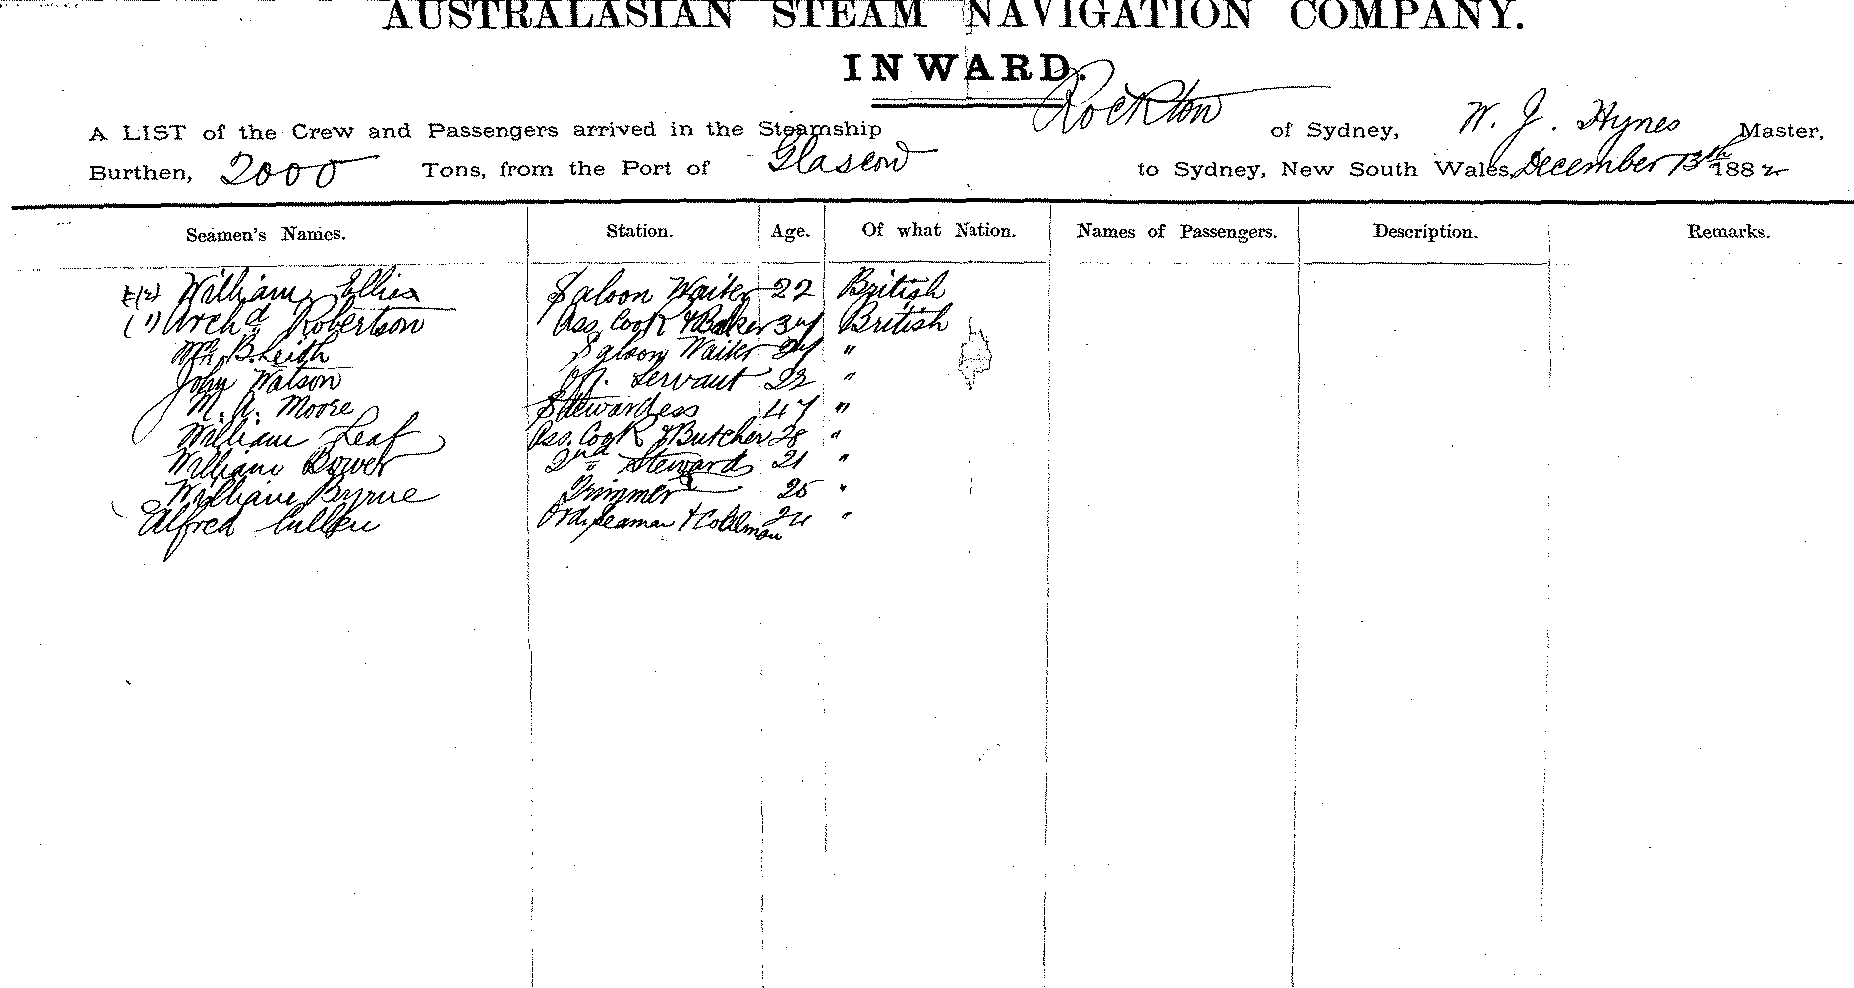 AUSTRALASIAN STEAM NAVIGATION COMPANY.
INWARD.
A LIST of the Crew and Passengers arrived in the Steamship Rockton of Sydney, W. J. Hynes Master,
Burthen, 2000 Tons, from the Port of Glascow to Sydney, New South Wales, December 13th 1882
Seamen's Names. Station. Age. Of what Nation. Names of Passengers. Description. Remarks.
William Ellis Saloon Waiter 22 British
(1) Archd Robertson Ass. Cook & Baker 34 British
Wm B. Leith Saloon Waiter 24 "
John Watson Off. Servant 22 "
M. A. Moore Stewardess 47 "
William Leaf Ass. Cook & Butcher 28 "
William Bower 2nd Steward 21 "
William Byrne Trimmer 25 "
Alfred Cullen Ord. Seaman & 24 "